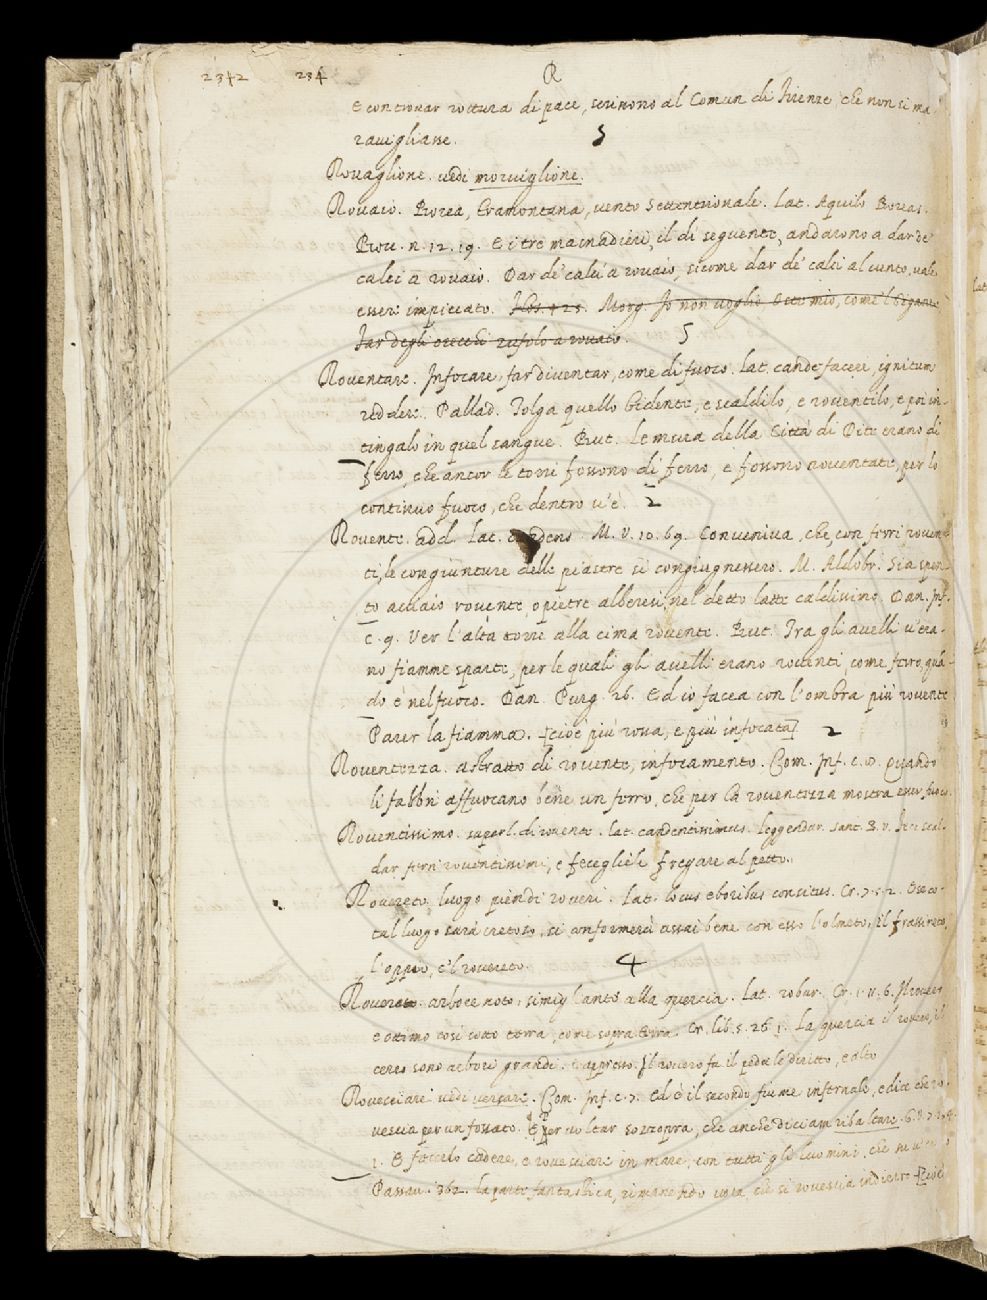 2342 234 R
e controvar rottura di pace, scrivono al Comun di Firenze che non si ma
ravigliasse. 5
Rovaglione. vedi morviglione.
Rovaio. Borea, tramontana, vento settentrionale. Lat. Aquilo Boreas.
Bocc. n. 12. 19. E i tre masnadieri, il dì seguente, andarono a dar de
calci à rovaio. Dar de' calci a rovaio, sicome dar de' calci al vento, vale
esser impiccato. Morg. Io non voglio, Otte mio, come'l Gigante
Far degli orecchi zufolo a rovaio. 5
Roventare. Infocare, far diventar, come di fuoco. Lat. candefacere, ignitum
reddere. Pallad. Tolga quello bidente, e scaldilo, e roventilo, e poi in-
tingalo in quel sangue. But. Le mura della Città di Dite erano di
ferro, che ancor le torri fossono di ferro, e fossono roventate, per lo
continuo fuoco, che dentro v'è. 2
Rovente. add. Lat. candens. M. V. 10. 69. Conveniva, che con ferri roven
ti, le congiunture delle piastre si congiugnessero. M. Aldobr. Sia spen
to acciaio rovente, o pietre alberesi nel detto latte caldissimo. Dan. Inf.
c. 9. Ver l'alta torre alla cima rovente. But. Tra gli avelli v'era-
no fiamme sparte, per le quali gli avelli erano roventi, come ferro, quā-
do è nel fuoco. Dan. Purg. 26. Ed io facea con l'ombra più rovente
Parer la fiamma. [cioè più rossa, e più infocata] 2
Roventezza. astratto di rovente, infocamento. Com. Inf. c. 8. Quando
li fabbri affuocano bene un ferro, che per la roventezza mostra esser fuoco.
Roventissimo. superl. di rovente. lat. candentissimus. Leggendar. sant. B. V. Fece scal-
dar ferri roventissimi, e fecegliele fregare al petto.
Rovereto. luogo pien di roveri. Lat. locus roboribus consitus. Cr. 7. 5. 2. E se co-
tal luogo sarà cretoso, si confermerà assai bene con esso l'olmeto, il frassineto,
l'oppio, e'l rovereto. 4
Rovero. arbore noto, simigliante alla quercia. Lat. robur. Cr. 1. 11. 6. Il rovero
è ottimo così sotto terra, come sopra terra. Cr. lib. 5. 26. 1. La quercia il rovero, il
cerro sono arbori grandi. e appresso. Il rovero fa il pedale diritto, e alto
Rovesciare vedi versare. Com. Inf. c. 7. Ed è il secondo fiume infernale, e dice che ro-
vescia per un fossato. E per voltar sozzopra, che anche diciam ribaltare. G. V. 7.
1. E feccelo cadere, e rovesciare in mare, con tutti gli huomini, che
Passav. 362. La parte fantastica, rimanendo vota, che si rovescia indietro [cioè